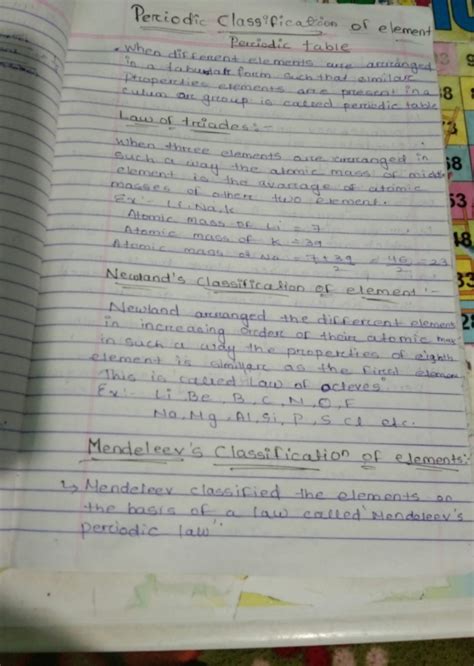 Periodic Classification of element
Periodic table
. When different elements are arranged
in a tabular form such that similar
Properties elements are present in a
culum or group is called periodic table
Law of triades:-
When three elements are arranged in
such a way the atomic mass of middle
element is the avarage of atomic
masses of others two element.
Ex:- Li, Na, K
Atomic mass of Li = 7
Atomic mass of K = 39
Atomic mass of Na = 7+39/2 = 46/2 = 23
Newland's classification of element:-
Newland arranged the different elements
in increasing order of their atomic mas
in such a way the properties of eighth
element is similar as the first elemen
This is called law of octeves"
Ex:- Li Be, B, C, N, O, F
Na, Mg, Al, Si, P, S Cl etc.
Mendeleev's Classification of elements:-
Mendeleev classified the elements on
the basis of a law called 'Mendeleev's
periodic law'.